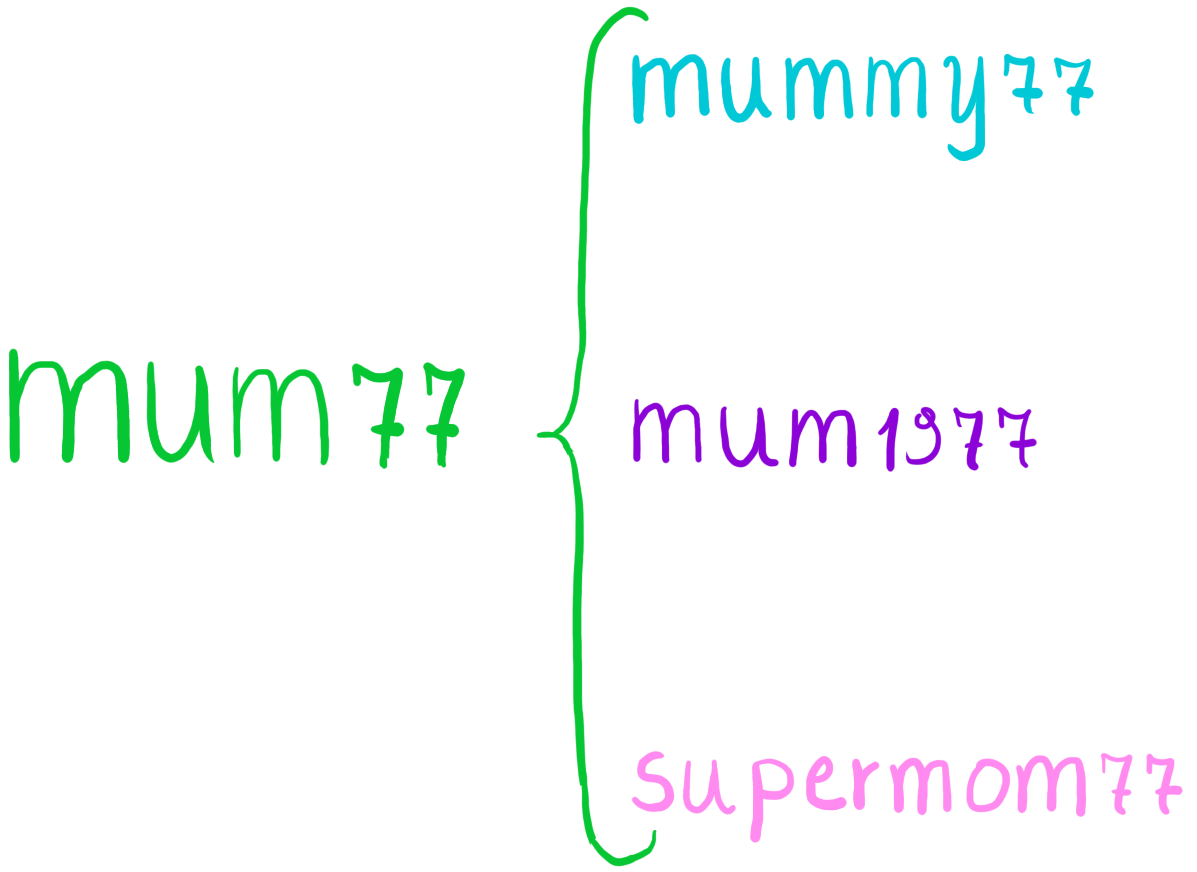 mummy77
mum77
mum1977
supermom77